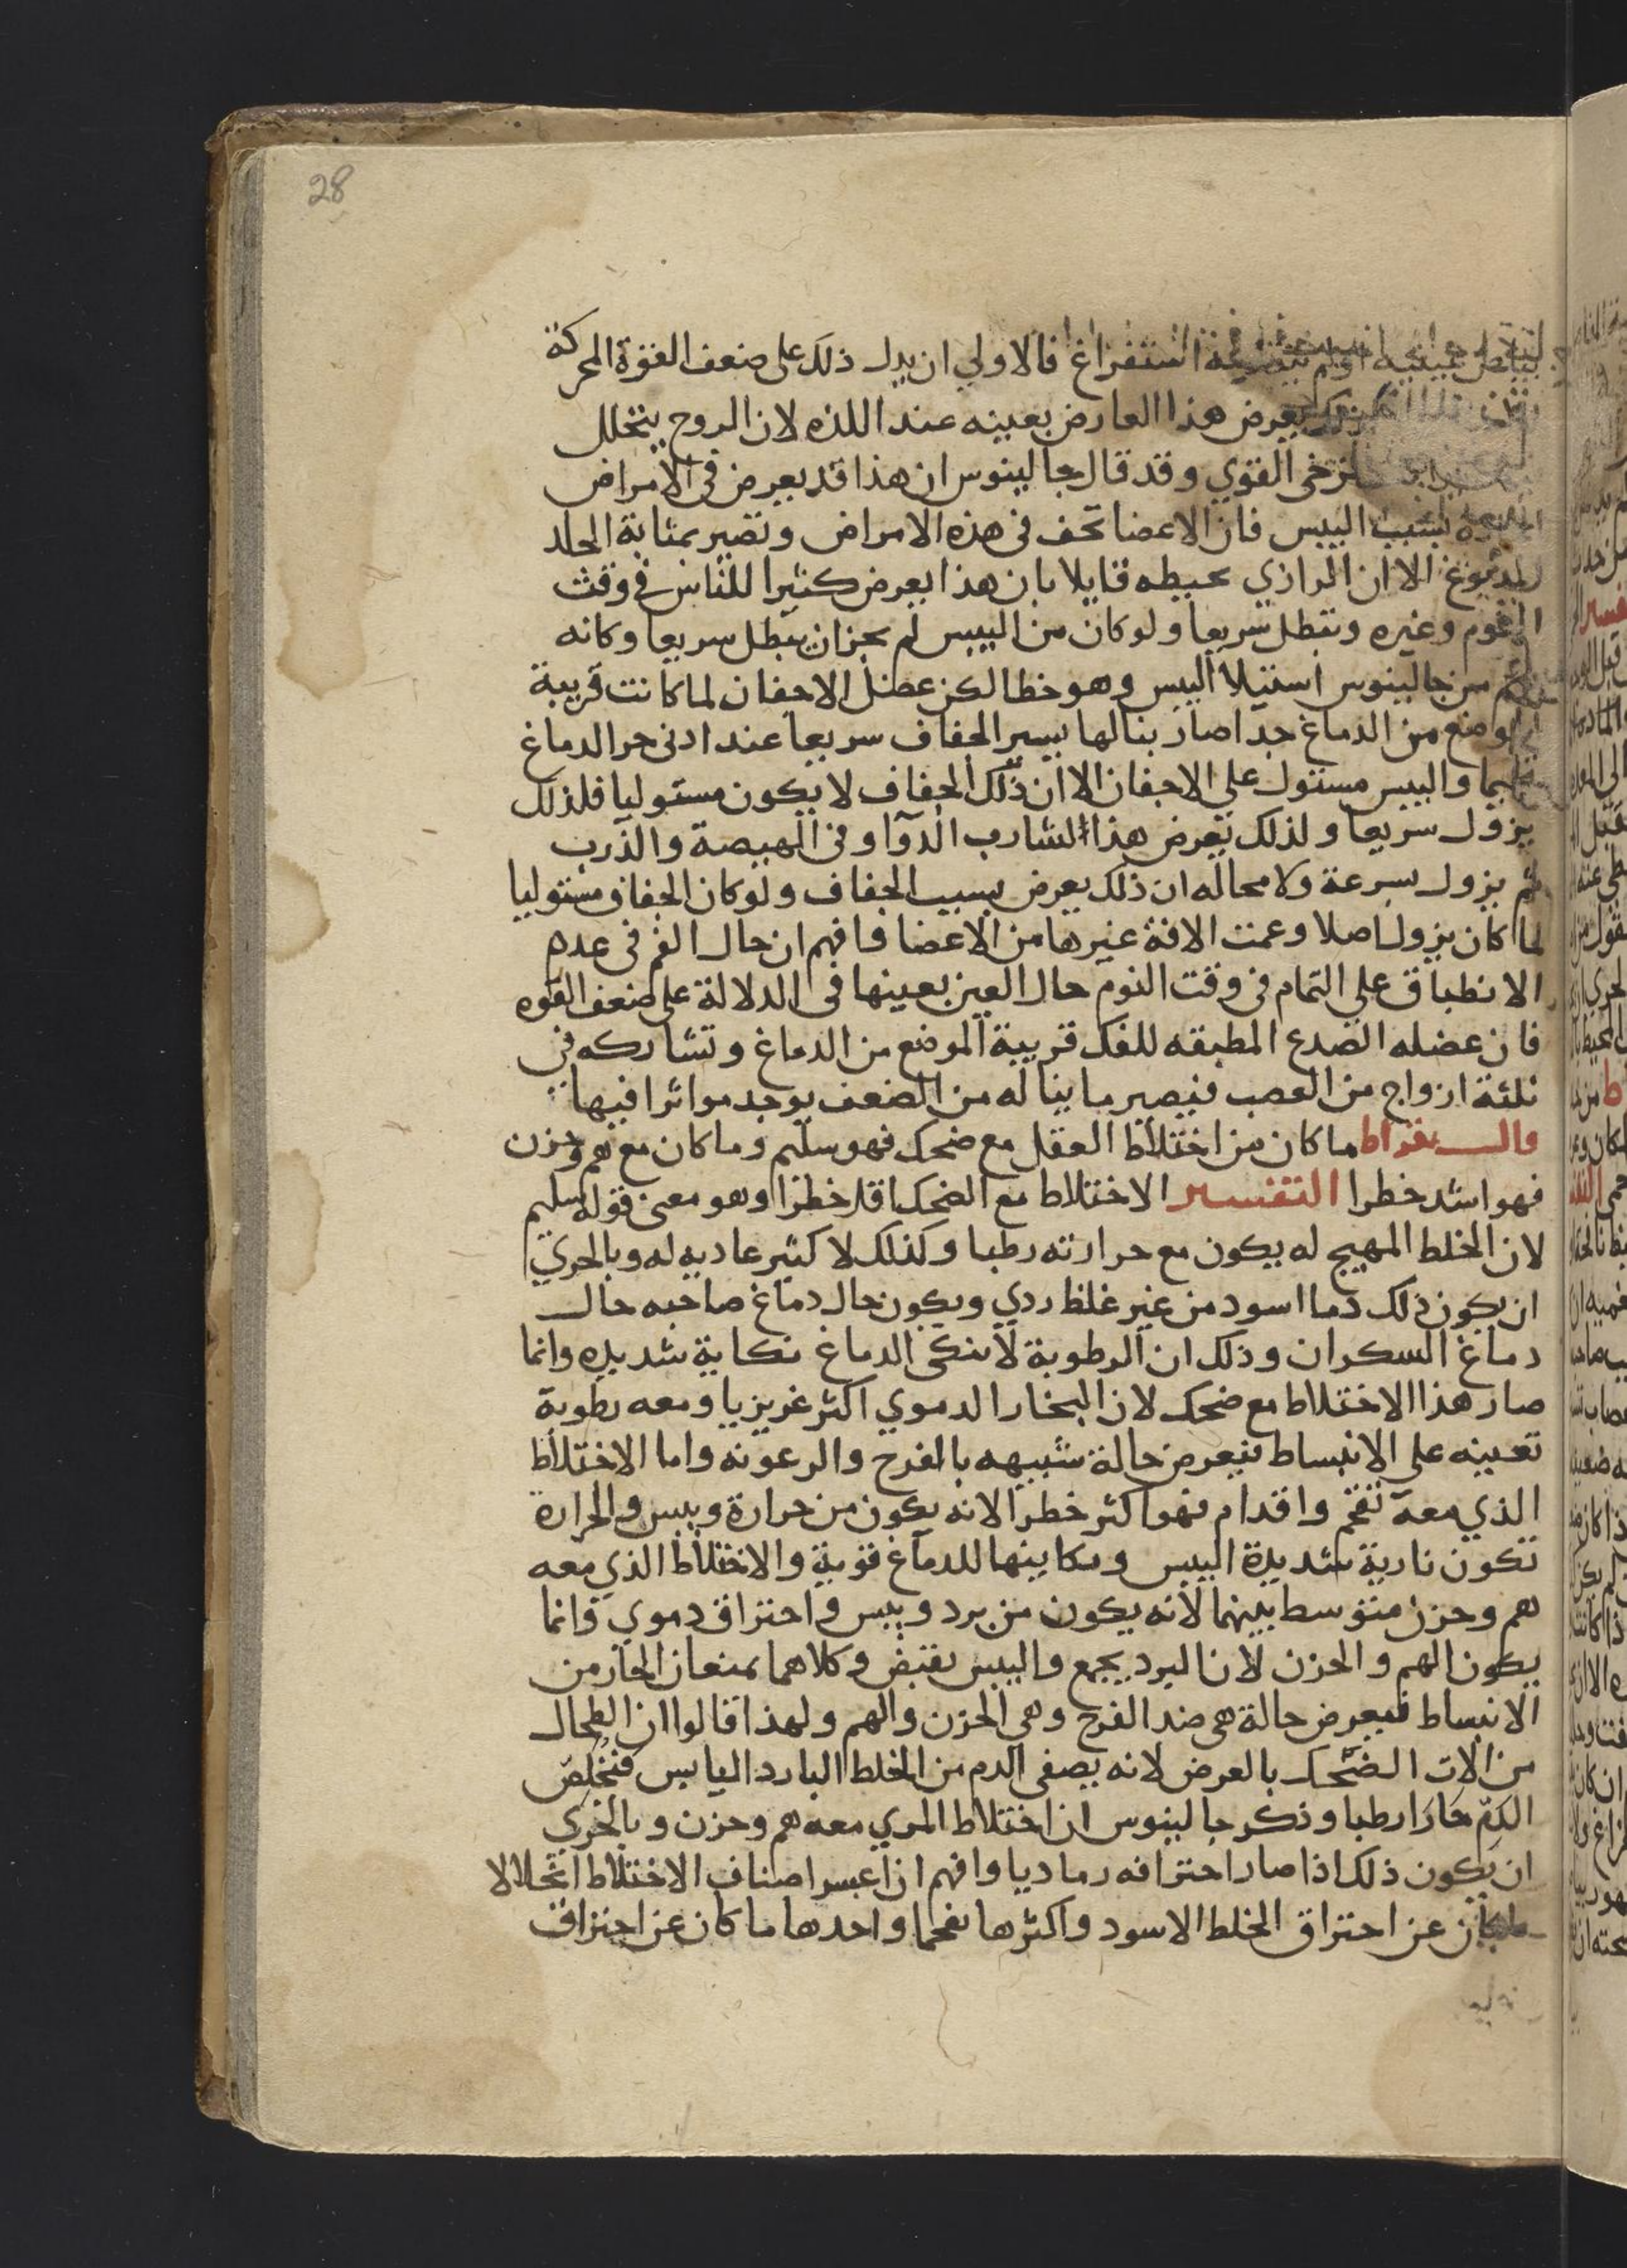 28
استفراغ فالاولي ان يدل ذلك على ضعف القوة المحركة
يعرض هذا العارض بعينه عند اللذه لان الروح يتحلل
القوي وقد قال جالينوس ان هذا قد يعرض في الامراض
بسبب اليبس فان الاعضا تجف في هذه الامراض وتصير بمثابة الجلد
المدبوغ الا ان الرازي يحيطه قايلا بان هذا يعرض كثيرا للناس في وقت
وغيره وتبطل سريعا ولو كان من اليبس لم يجز ان يبطل سريعا وكانه
من جالينوس استيلا اليبس وهو خطا لكن عضل الاجفان لما كانت قريبة
الوضع من الدماغ جدا صار ينالها يسير الجفاف سريعا عند ادنى حر الدماغ
واليبس مستول على الاجفان الا ان ذلك الجفاف لا يكون مستوليا فلذلك
يزول سريعا ولذلك تعرض هذا لشارب الدوا وفي الهيضة والذرب
ثم يزول بسرعة ولا محاله ان ذلك يعرض بسبب الجفاف ولو كان الجفاف مستوليا
لما كان يزول اصلا وعمت الافة غيرها من الاعضا فافهم ان حال الفم في عدم
الانطباق على التمام في وقت النوم حال العين بعينها في الدلالة على ضعف القوه
فان عضله الصدع المطبقه للفك قريبة الموضع من الدماغ وتشاركه في
ثلثة ازواج من العصب فيصير ما يناله من الضعف يوجد مواثرا فيها
قال بقراط ما كان من اختلاط العقل مع ضحك فهو سليم وما كان مع هم وحزن
فهو اشد خطرا التفسير الاختلاط مع الضحك اقل خطرا وهو معنى قوله سليم
لان الخلط المهيج له يكون مع حرارته رطبا وكذلك لا كثير عاديه له وبالحري
ان يكون ذلك دما اسود من غير غلظ ردي ويكون حال دماغ صاحبه حال
دماغ السكران وذلك ان الرطوبة لا تنكي الدماغ نكاية شديده وانما
صار هذا الاختلاط مع ضحك لان البخار الدموي اكثر غريزيا ومعه رطوبة
تعينه على الانبساط فيعرض حالة شبيهه بالفرح والرعونه واما الاختلاط
الذي معه تقحم واقدام فهو اكثر خطرا لانه يكون من حرارة ويبس والحرارة
تكون نارية شديدة اليبس ونكايتها للدماغ قوية والاختلاط الذي معه
هم وحزن متوسط بينهما لانه يكون من برد ويبس واحتراق دموي وانما
يكون الهم والحزن لان البرد يجمع واليبس يقبض وكلاهما يمنعان الحار من
الانبساط فيعرض حالة هي ضد الفرح وهي الحزن والهم ولهذا قالوا ان الطحال
من الات الضحك بالعرض لانه يصفى الدم من الخلط البارد اليابس فتخلص
الدم حارا رطبا وذكر جالينوس ان اختلاط المري معه هم وحزن وبالحري
ان يكون ذلك اذا صار احتراقه رماديا وافهم ان اعسر اصناف الاختلاط انحلالا
ما كان عن احتراق الخلط الاسود واكثرها تقحما واحدها ما كان عن احتراق